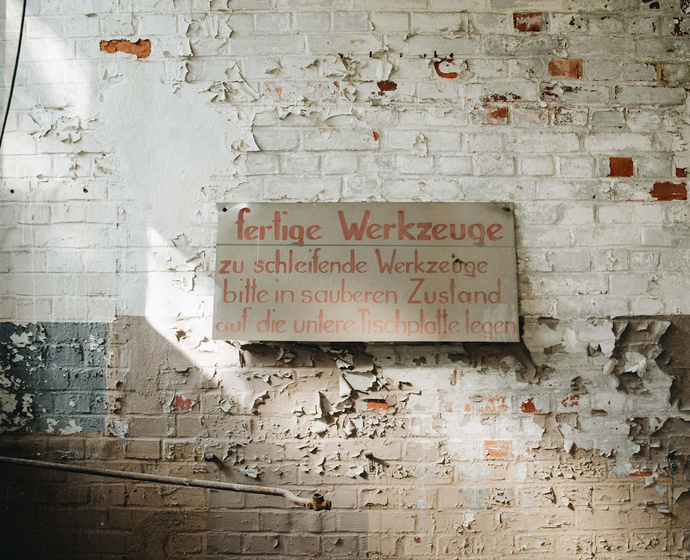 fertige Werkzeuge
zu schleifende Werkzeuge
bitte in sauberen Zustand
auf die untere Tischplatte legen